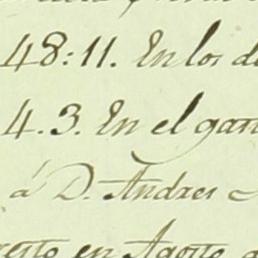 48:11. En los d
4.3. En el gan
á D. Andres
resto en Agosto